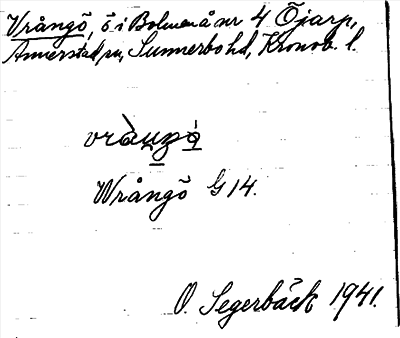 Vrångö, ö i Bolmen å nr 4 Öjarp,
Annerstad sn, Sunnerbo hd, Kronob. l.
Wrångö G 14.
O. Segerbäck 1941.